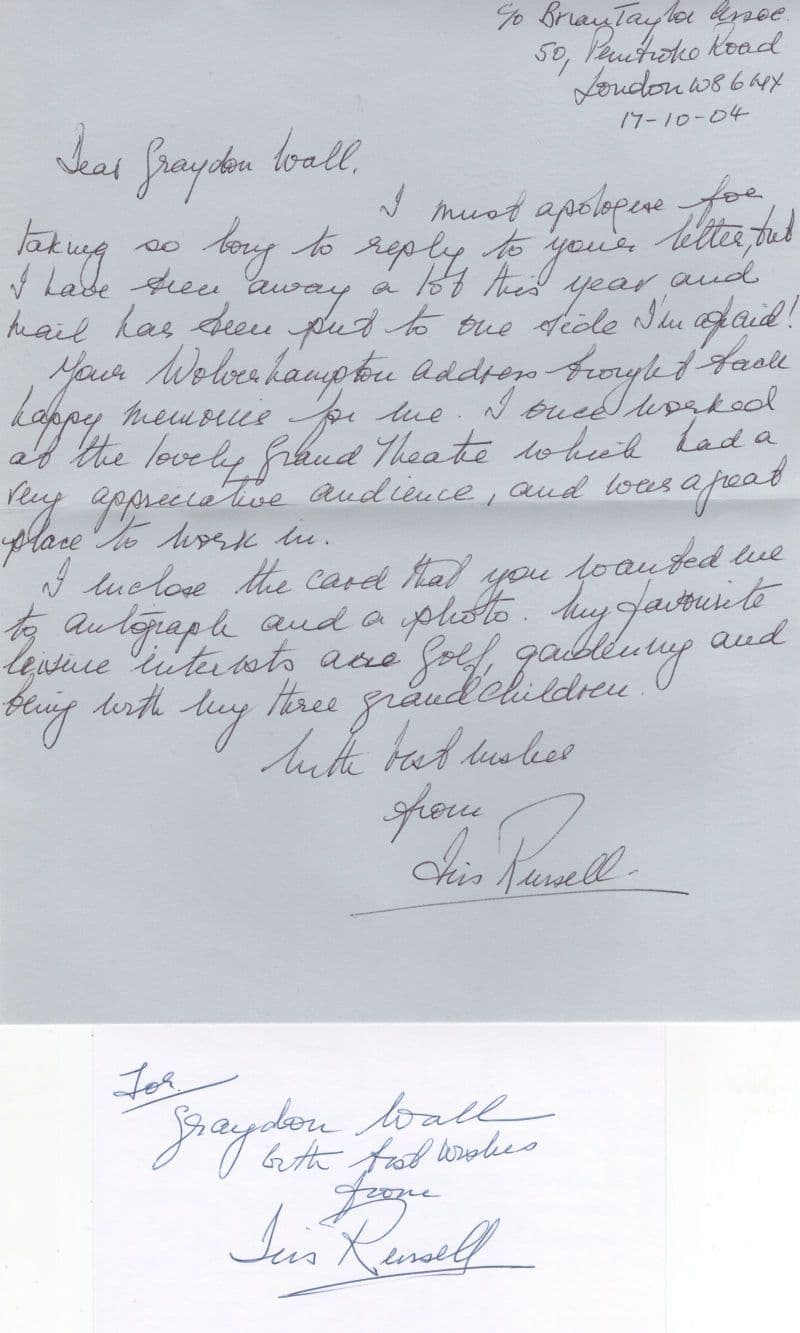 c/o Brian Taylor Assoc.
50, Pembroke Road
London W8 6NX
17-10-04
Dear Graydon Wall,
I must apologise for
taking so long to reply to your letter, but
I have been away a lot this year and
mail has been put to one side I'm afraid!
Your Wolverhampton address brought back
happy memories for me. I once worked
at the lovely Grand Theatre which had a
very appreciative audience, and was a great
place to work in.
I enclose the card that you wanted me
to autograph and a photo. My favourite
leisure interests are Golf, gardening and
being with my three grandchildren.
With best wishes
from
Iris Russell.
For
Graydon Wall
with best wishes
from
Iris Russell